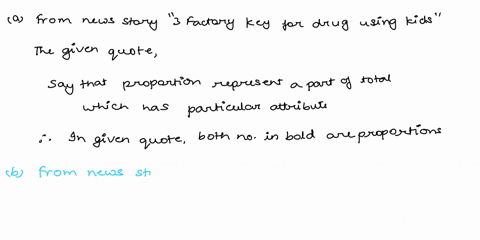 (a) from news story "3 Factory key for drug using kids"
The given quote,
Say that proportion represent a part of total
which has particular attribute
∴ In given quote, both no. in bold are proportions
(b) from news st